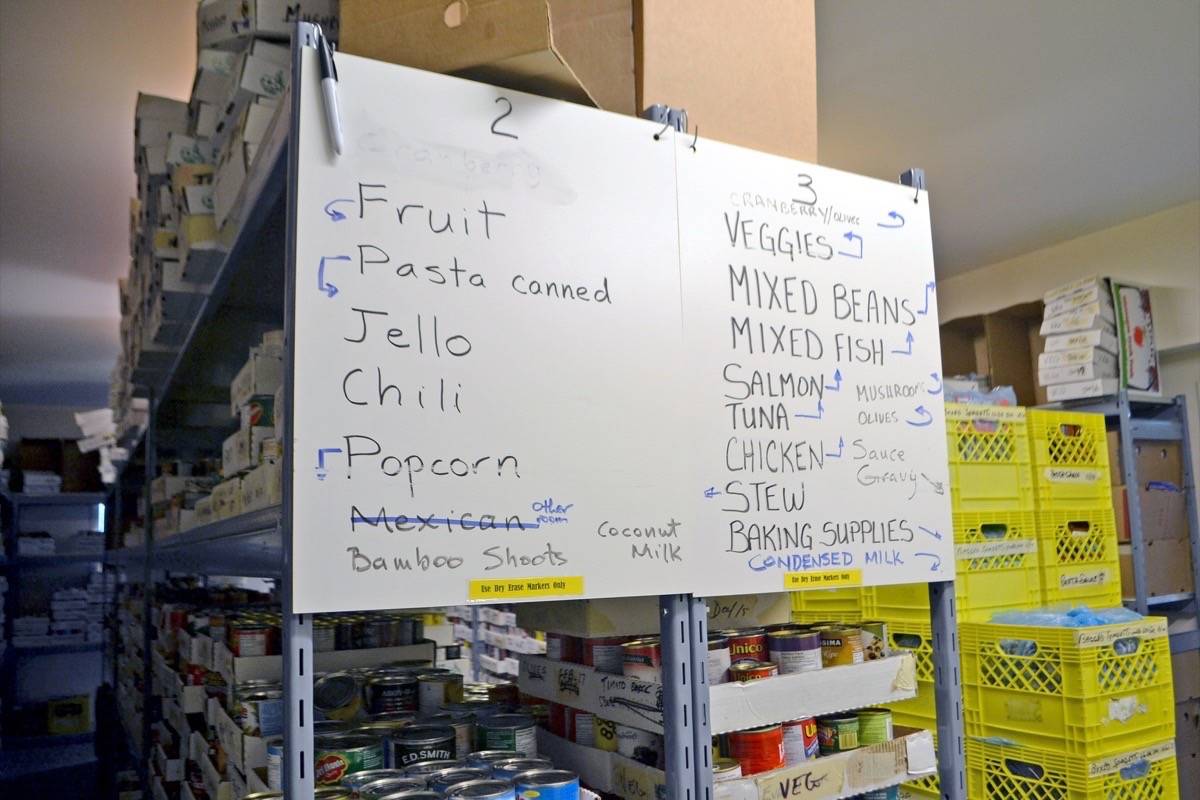 2
Cranberry
Fruit
Pasta canned
Jello
Chili
Popcorn
Mexican other room
Bamboo Shoots
Coconut Milk
Use Dry Erase Markers Only
3
CRANBERRY/OLIVES
VEGGIES
MIXED BEANS
MIXED FISH
SALMON
TUNA
MUSHROOMS
OLIVES
CHICKEN
Sauce
Gravy
STEW
BAKING SUPPLIES
CONDENSED MILK
Use Dry Erase Markers Only
E.D.SMITH
Unico
VEG
VEG